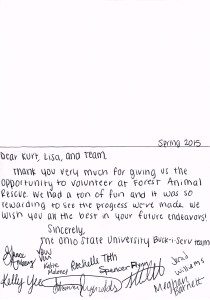 Spring 2015
Dear Kurt, Lisa, and Team
Thank you very much for giving us the
opportunity to volunteer at Forest Animal
Rescue. We had a ton of fun and it was so
rewarding to see the progress we've made. We
wish you all the best in your future endeavors!
Sincerely,
The Ohio State University Buck-i-Serv team
Rachelle Toth
Spencer Flynn
Jeni
Williams
Kelly Yee
Reynolds
Meghan
Barnett